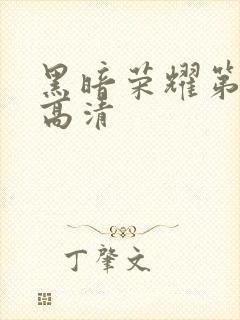 黑暗荣耀第
高清
丁肇文